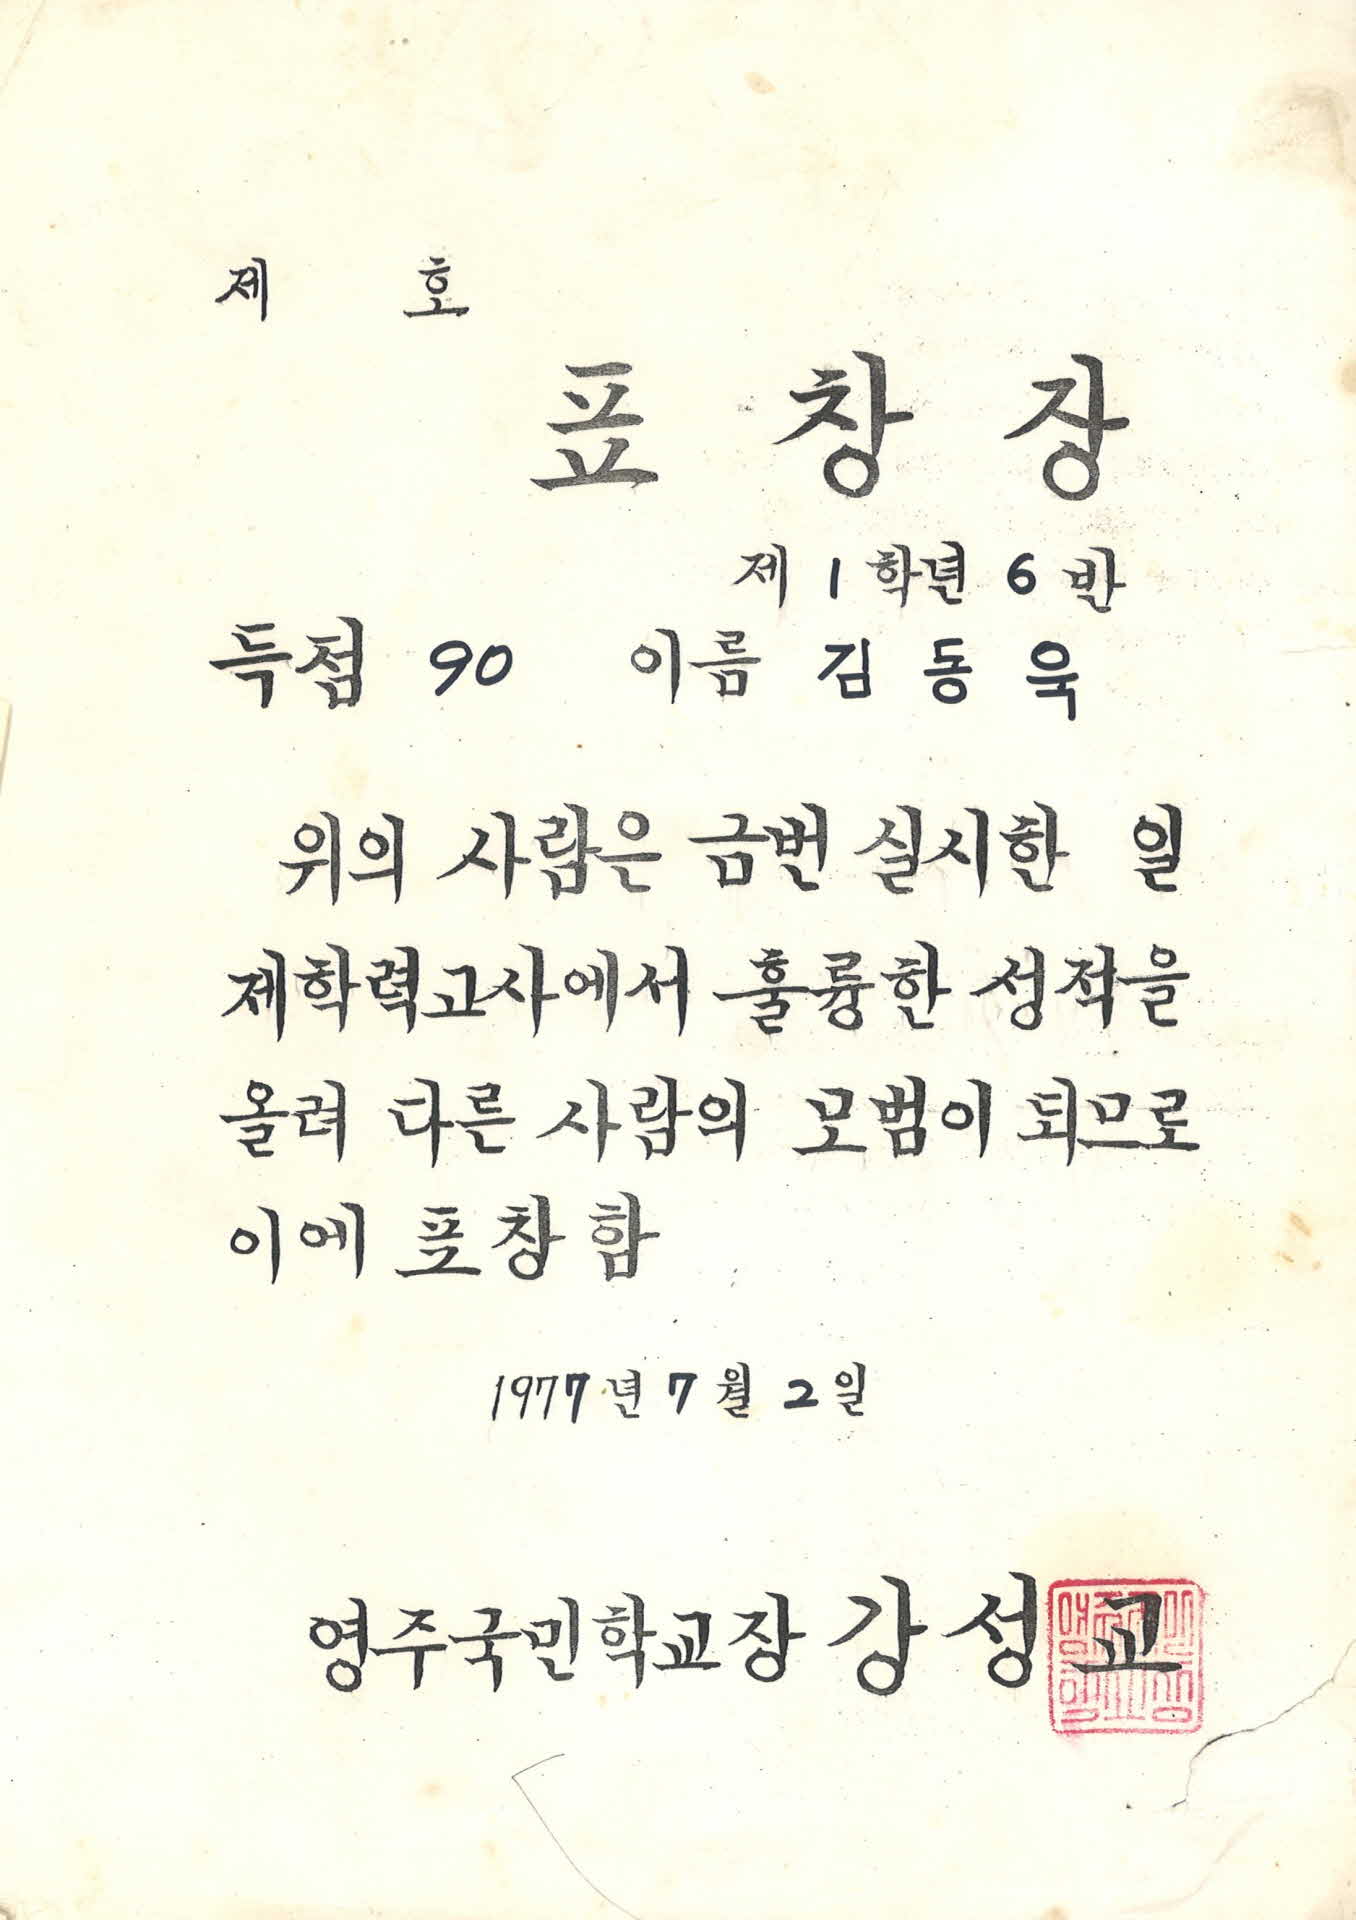 제 호
표 창 장
제 1 학년 6 반
득점 90 이름 김 동 욱
위의 사람은 금번 실시한 일
제학력고사에서 훌륭한 성적을
올려 다른 사람의 모범이 되므로
이에 표창함
1977년 7월 2일
영주국민학교장 강성교